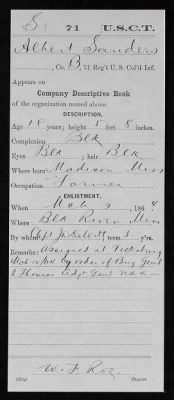 S 71 U.S.C.T.
Albert Sanders
, Co. B, 71 Reg't U.S. Col'd Inf.
Appears on
Company Descriptive Book
of the organization named above.
DESCRIPTION.
Age 18 years; height 5 feet 8 inches.
Complexion Blk
Eyes Blk ; hair Blk
Where born Madison, Miss
Occupation Farmer
ENLISTMENT.
When Mch 9 , 1864
Where Blk River, Miss
By whom Capt J. DeWitt term 3 y'rs.
Remarks: Assigned at Vicksburg
by order of Brig Genl
L Thomas Adgt Genl U.S.A.
W. F. Roe
Copyist.